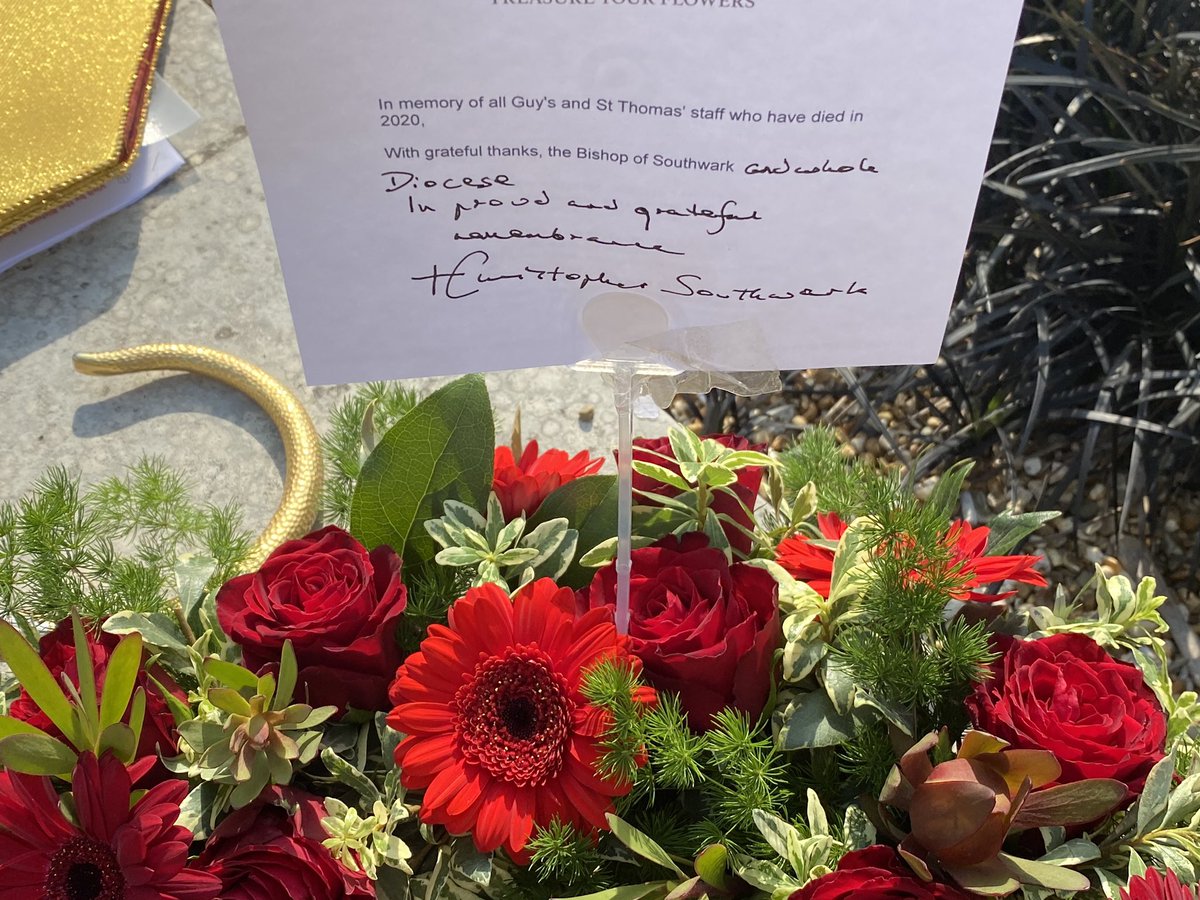 TREASURE YOUR FLOWERS
In memory of all Guy's and St Thomas' staff who have died in
2020,
With grateful thanks, the Bishop of Southwark and whole
Diocese
In proud and grateful
remembrance
+Christopher Southwark